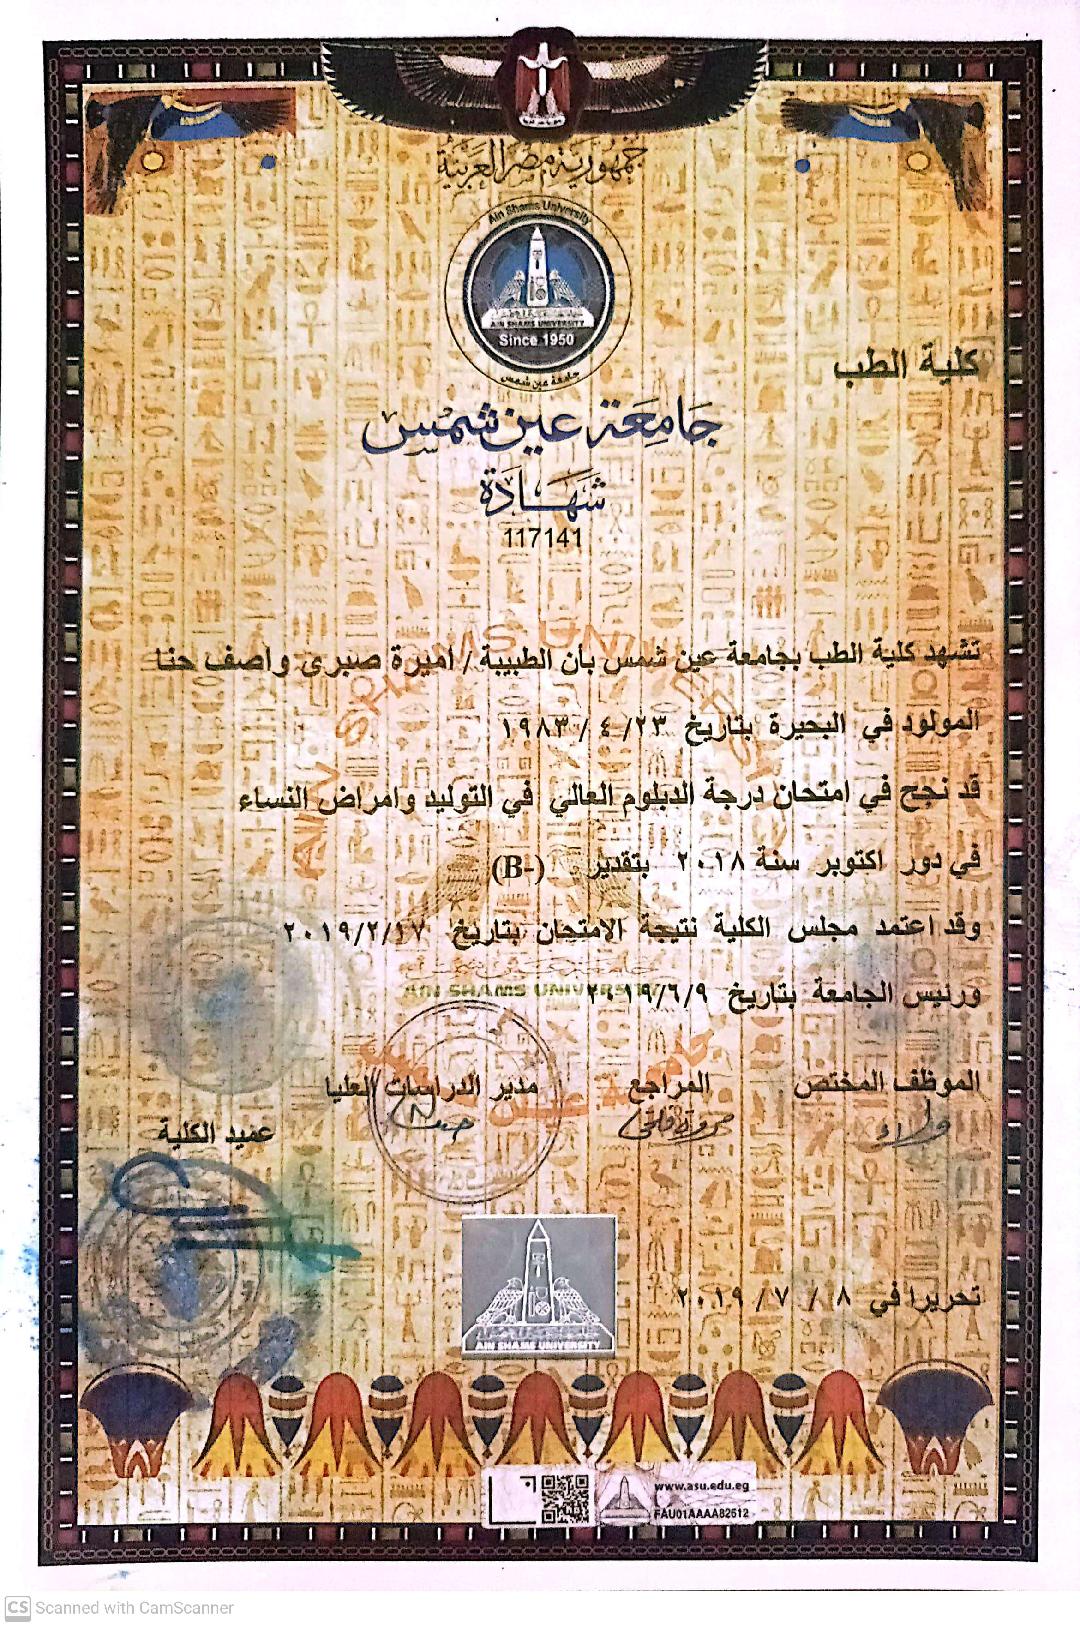 جمهورية مصر العربية
Ain Shams University
AIN SHAMS UNIVERSITY
Since 1950
جامعة عين شمس
كلية الطب
جامعة عين شمس
شهادة
117141
تشهد كلية الطب بجامعة عين شمس بان الطبيبة / اميرة صبرى واصف حنا
المولود في البحيرة بتاريخ ٢٣ / ٤ / ١٩٨٣
قد نجح في امتحان درجة الدبلوم العالي في التوليد وامراض النساء
في دور اكتوبر سنة ٢٠١٨ بتقدير (B-)
وقد اعتمد مجلس الكلية نتيجة الامتحان بتاريخ ٢٠١٩/٢/١٧
AIN SHAMS UNIVERSITY
ورئيس الجامعة بتاريخ ٢٠١٩/٦/٩
الموظف المختص المراجع مدير الدراسات العليا
عميد الكلية
تحريرا في ٨ / ٧ / ٢٠١٩
AIN SHAMS UNIVERSITY
www.asu.edu.eg
FAU01AAAA82512
CS Scanned with CamScanner